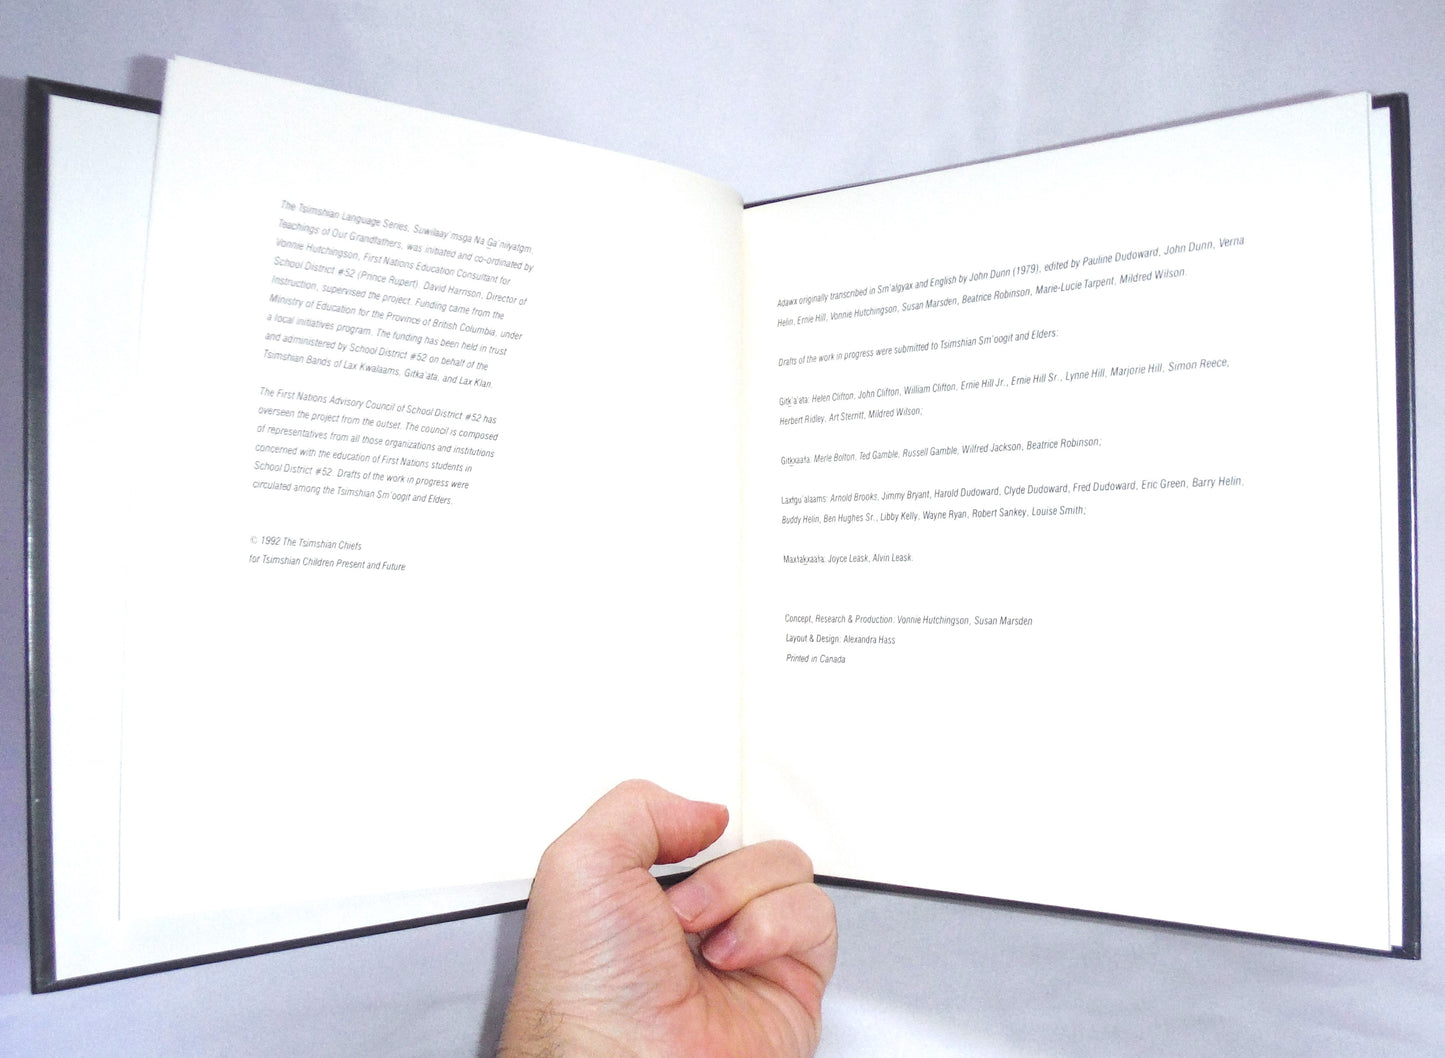 The Tsimshian Language Series, Suwilaay'msga Na G̲a'niiyatgm,
Teachings of Our Grandfathers, was initiated and co-ordinated by
Vonnie Hutchingson, First Nations Education Consultant for
School District #52 (Prince Rupert). David Harrison, Director of
Instruction, supervised the project. Funding came from the
Ministry of Education for the Province of British Columbia, under
a local initiatives program. The funding has been held in trust
and administered by School District #52 on behalf of the
Tsimshian Bands of Lax Kwalaams, Gitka'ata, and Lax Klan.
The First Nations Advisory Council of School District #52 has
overseen the project from the outset. The council is composed
of representatives from all those organizations and institutions
concerned with the education of First Nations students in
School District #52. Drafts of the work in progress were
circulated among the Tsimshian Sm'oogit and Elders.
© 1992 The Tsimshian Chiefs
for Tsimshian Children Present and Future
Adawx originally transcribed in Sm'algyax and English by John Dunn (1979), edited by Pauline Dudoward, John Dunn, Verna
Helin, Ernie Hill, Vonnie Hutchingson, Susan Marsden, Beatrice Robinson, Marie-Lucie Tarpent, Mildred Wilson.
Drafts of the work in progress were submitted to Tsimshian Sm'oogit and Elders:
Gitk̲'a'ata: Helen Clifton, John Clifton, William Clifton, Ernie Hill Jr., Ernie Hill Sr., Lynne Hill, Marjorie Hill, Simon Reece,
Herbert Ridley, Art Sterritt, Mildred Wilson;
Gitk̲xaała: Merle Bolton, Ted Gamble, Russell Gamble, Wilfred Jackson, Beatrice Robinson;
Laxłgu'alaams: Arnold Brooks, Jimmy Bryant, Harold Dudoward, Clyde Dudoward, Fred Dudoward, Eric Green, Barry Helin,
Buddy Helin, Ben Hughes Sr., Libby Kelly, Wayne Ryan, Robert Sankey, Louise Smith;
Maxłak̲xaała: Joyce Leask, Alvin Leask.
Concept, Research & Production: Vonnie Hutchingson, Susan Marsden
Layout & Design: Alexandra Hass
Printed in Canada